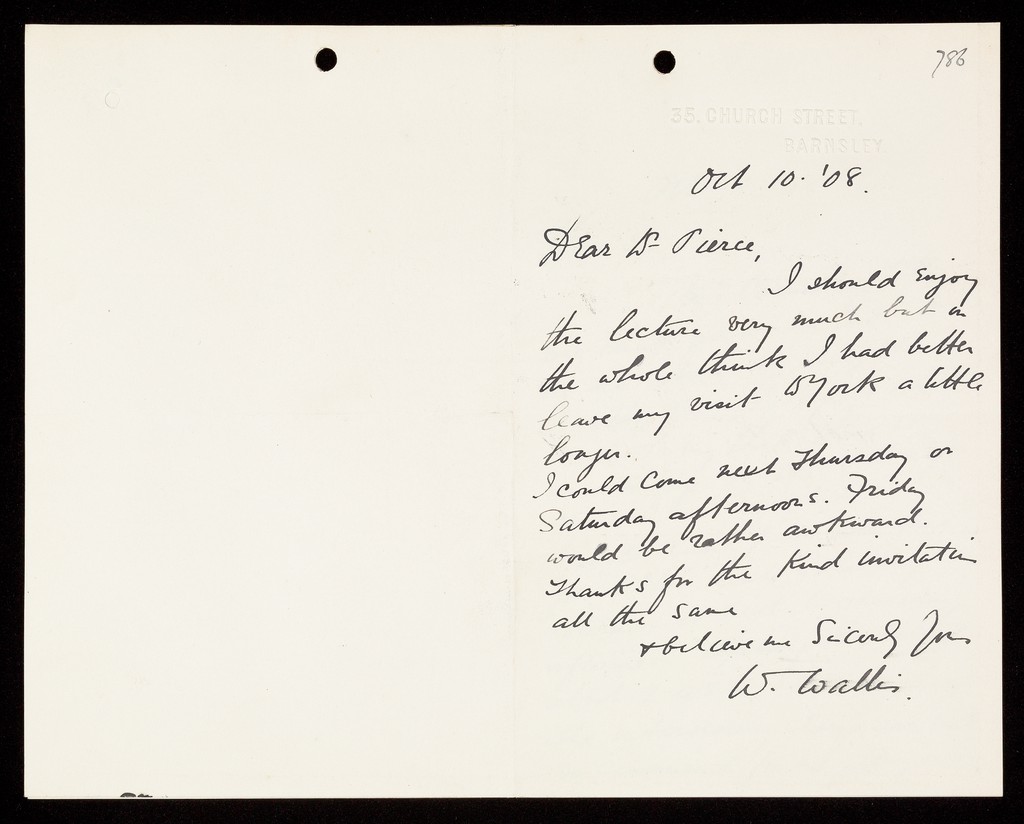 786
35, CHURCH STREET,
BARNSLEY
Oct 10. '08.
Dear Dr Pierce,
I should enjoy
the lecture very much but on
the whole think I had better
leave my visit to York a little
longer.
I could come next Thursday or
Saturday afternoons. Friday
would be rather awkward.
Thanks for the kind invitation
all the same
& believe me Sicerely Yours
W. Wallis.